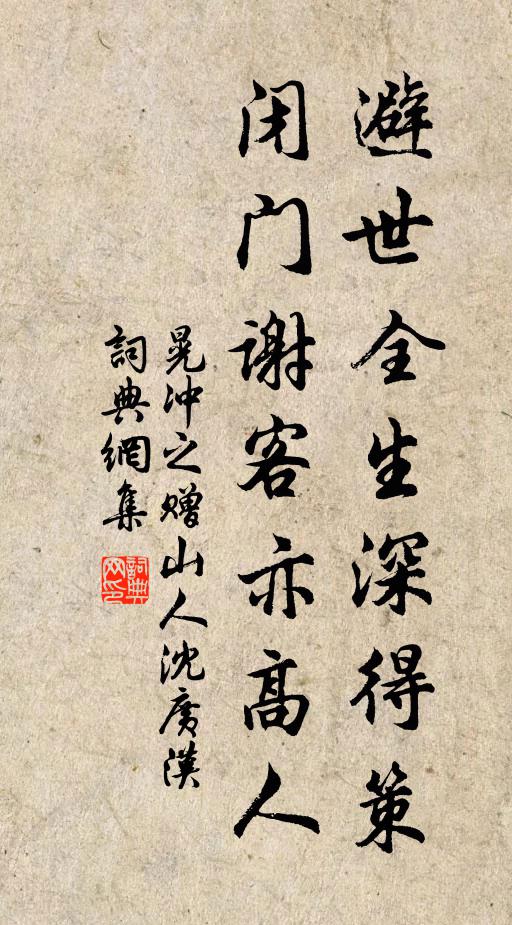 避世全生深得策
闭门谢客亦高人
晁冲之赠山人沈广汉
詞典網集
詞典网印